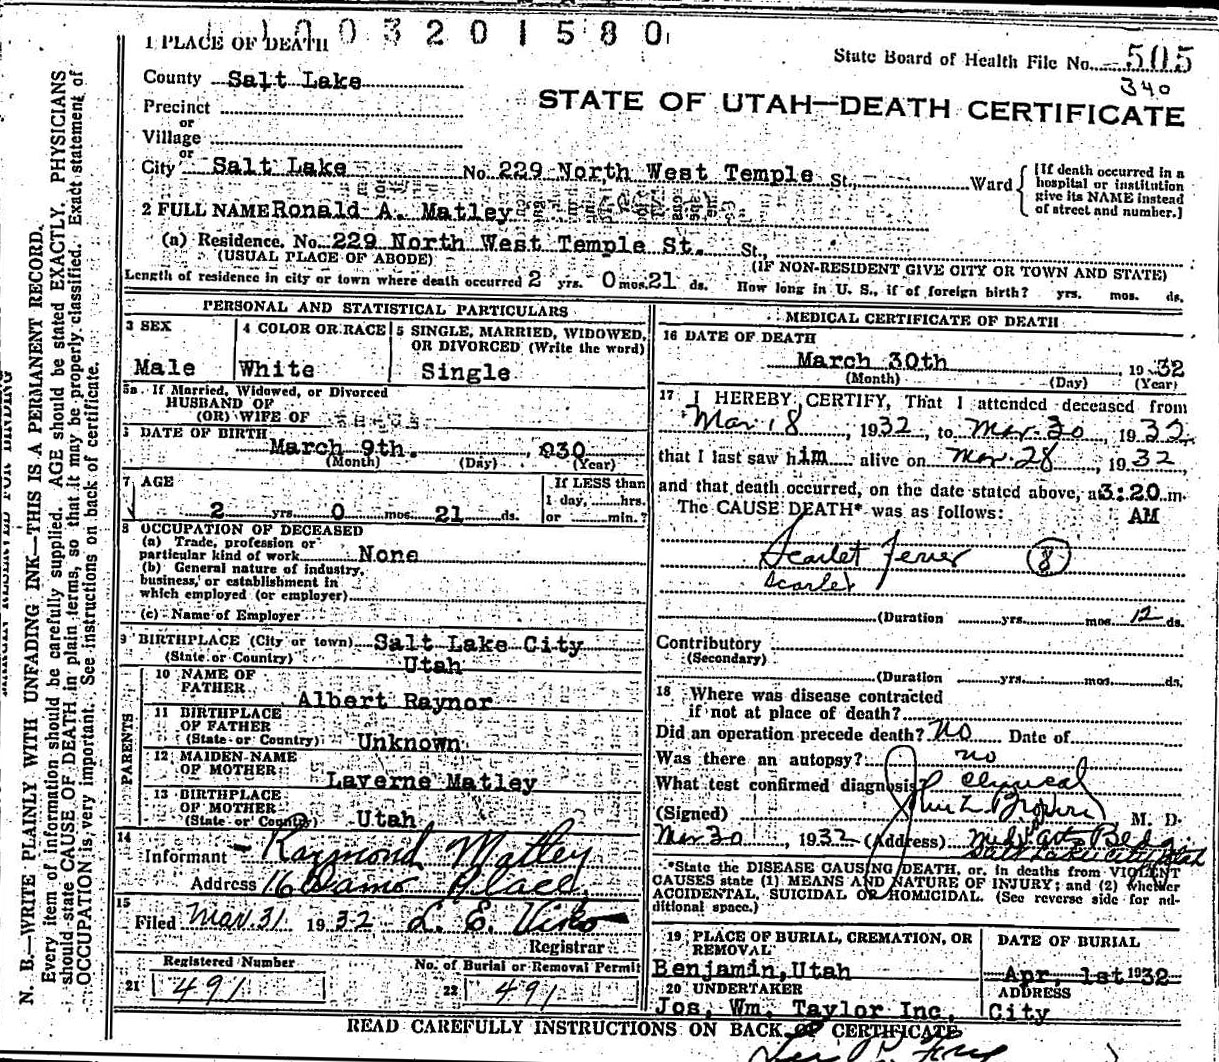 1003201580
1 PLACE OF DEATH
State Board of Health File No. 505
340
County Salt Lake
STATE OF UTAH—DEATH CERTIFICATE
Precinct
or
Village
or
City Salt Lake No. 229 North West Temple St., Ward
[If death occurred in a hospital or institution give its NAME instead of street and number.]
2 FULL NAME Ronald A. Matley
(a) Residence. No. 229 North West Temple St. St.,
(USUAL PLACE OF ABODE) (IF NON-RESIDENT GIVE CITY OR TOWN AND STATE)
Length of residence in city or town where death occurred 2 yrs. 0 mos. 21 ds. How long in U. S., if of foreign birth? yrs. mos. ds.
PERSONAL AND STATISTICAL PARTICULARS
3 SEX
Male
4 COLOR OR RACE
White
5 SINGLE, MARRIED, WIDOWED,
OR DIVORCED (Write the word)
Single
5a If Married, Widowed, or Divorced
HUSBAND OF
(OR) WIFE OF
DATE OF BIRTH
March 9th. , 930
(Month) (Day) (Year)
7 AGE
2 yrs. 0 mos. 21 ds.
If LESS than
1 day, hrs.
or min.?
8 OCCUPATION OF DECEASED
(a) Trade, profession or
particular kind of work None
(b) General nature of industry,
business, or establishment in
which employed (or employer)
(c) Name of Employer
9 BIRTHPLACE (City or town) Salt Lake City
(State or Country) Utah
PARENTS
10 NAME OF
FATHER
Albert Raynor
11 BIRTHPLACE
OF FATHER
(State or Country) Unknown
12 MAIDEN NAME
OF MOTHER
Laverne Matley
13 BIRTHPLACE
OF MOTHER
(State or Country) Utah
14
Informant Raymond Matley
Address 16 Place
15
Filed Mar. 31 1932 L. E. Viko
Registrar
Registered Number
21 491
No. of Burial or Removal Permit
22 491
MEDICAL CERTIFICATE OF DEATH
16 DATE OF DEATH
March 30th 1932
(Month) (Day) (Year)
17 I HEREBY CERTIFY, That I attended deceased from
Mar. 18, 1932, to Mar. 30, 1932,
that I last saw him alive on Mar. 28, 1932,
and that death occurred, on the date stated above, at 3:20 m.
The CAUSE DEATH* was as follows: AM
Scarlet Fever (8)
Scarlet
(Duration yrs. mos. 12 ds.
Contributory
(Secondary)
(Duration yrs. mos. ds.
18 Where was disease contracted
if not at place of death?
Did an operation precede death? No Date of
Was there an autopsy? no
What test confirmed diagnosis clinical
(Signed) John Z Brown M. D.
Mar 30, 1932 (Address) Med Arts Bldg
Salt Lake City Utah
*State the DISEASE CAUSING DEATH, or, in deaths from VIOLENT
CAUSES state (1) MEANS AND NATURE OF INJURY; and (2) whether
ACCIDENTAL, SUICIDAL OR HOMICIDAL. (See reverse side for ad-
ditional space.)
19 PLACE OF BURIAL, CREMATION, OR
REMOVAL
Benjamin, Utah
DATE OF BURIAL
Apr. 1st 1932
20 UNDERTAKER
Jos. Wm. Taylor Inc.
ADDRESS
City
READ CAREFULLY INSTRUCTIONS ON BACK OF CERTIFICATE
N. B.—WRITE PLAINLY WITH UNFADING INK—THIS IS A PERMANENT RECORD.
Every item of information should be carefully supplied. AGE should be stated EXACTLY. PHYSICIANS
should state CAUSE OF DEATH in plain terms, so that it may be properly classified. Exact statement of
OCCUPATION is very important. See instructions on back of certificate.